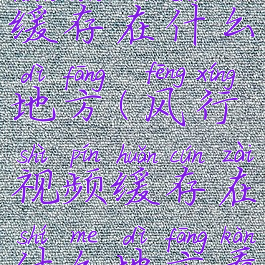 缓存在什么
dì fāng fēng xíng
地方(风行
shì pín huǎn cún zài
视频缓存在
shí me dì fāng kàn